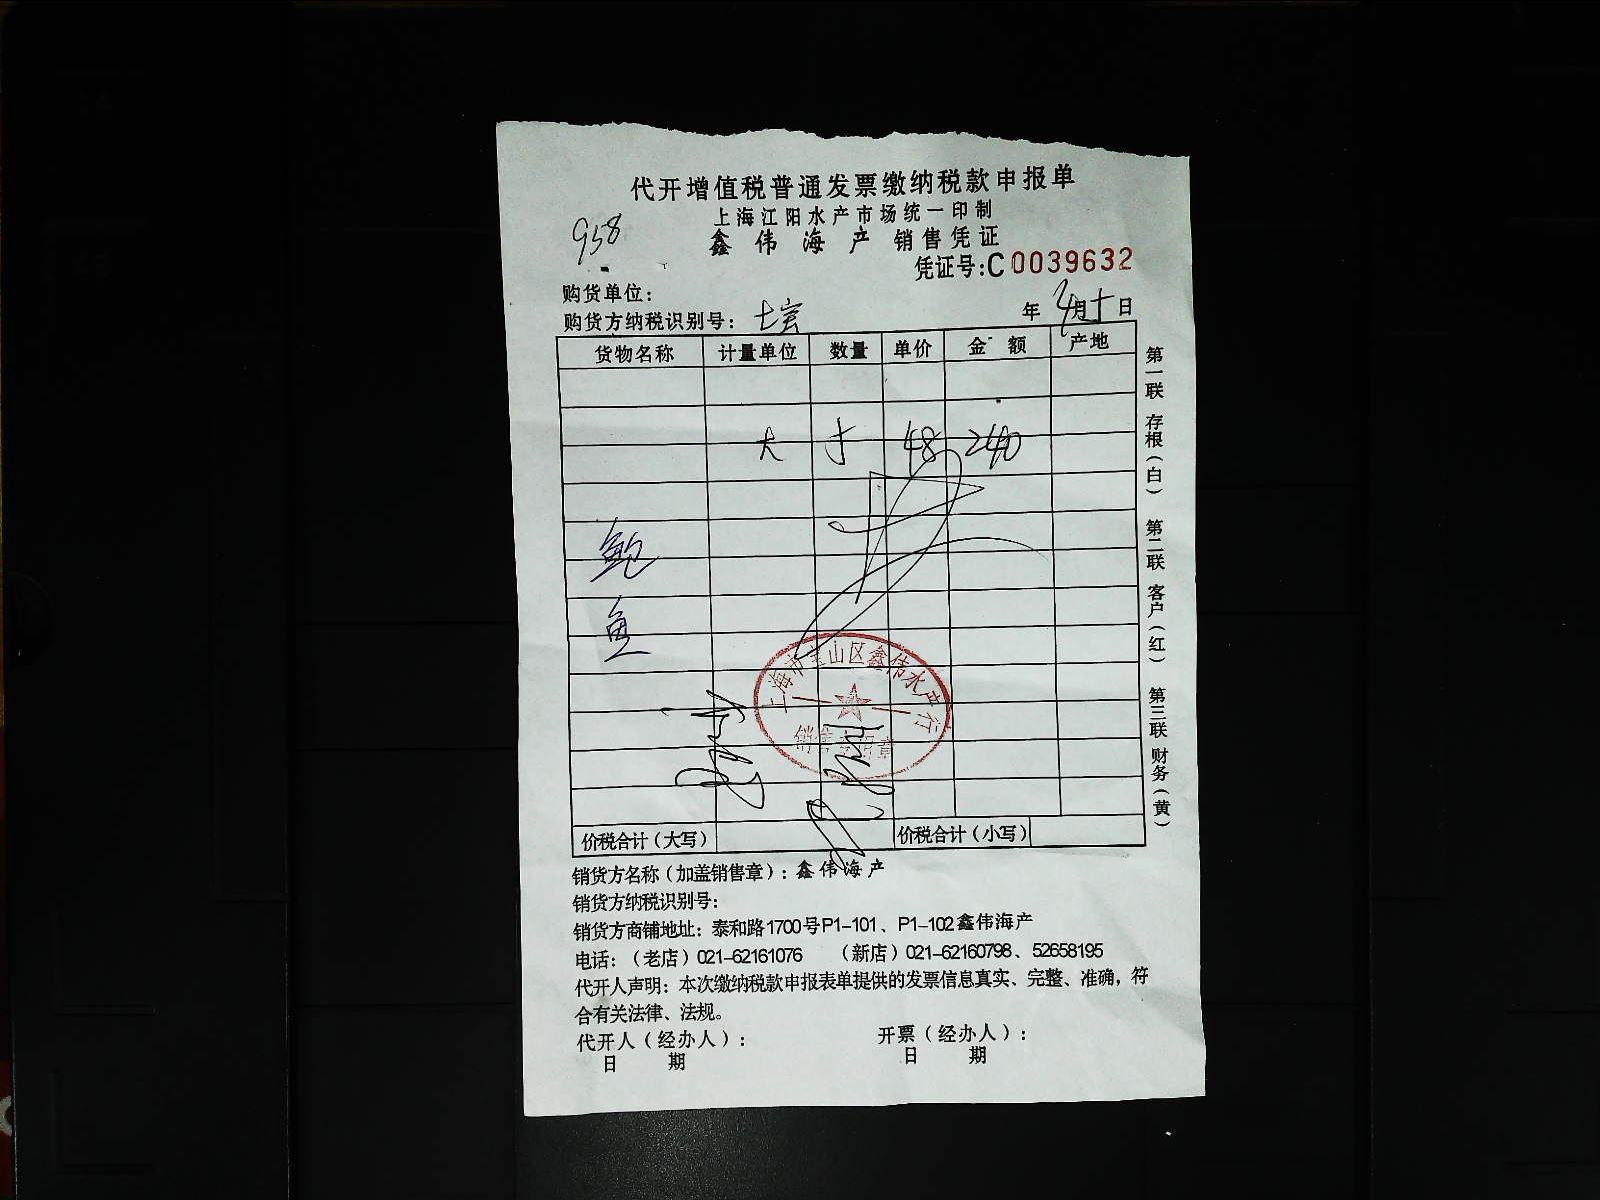 代开增值税普通发票缴纳税款申报单
上海江阳水产市场统一印制
958
鑫伟海产 销售凭证
凭证号:C0039632
购货单位:
购货方纳税识别号: 七宝
年 4月十日
货物名称 计量单位 数量 单价 金额 产地
大 48 240
鲍
鱼
上海市宝山区鑫伟水产行
销售专用章
价税合计(大写) 价税合计(小写)
第一联 存根(白) 第二联 客户(红) 第三联 财务(黄)
销货方名称(加盖销售章): 鑫伟海产
销货方纳税识别号:
销货方商铺地址: 泰和路1700号P1-101、P1-102鑫伟海产
电话:(老店)021-62161076 (新店)021-62160798、52658195
代开人声明: 本次缴纳税款申报表单提供的发票信息真实、完整、准确,符
合有关法律、法规。
代开人(经办人): 开票(经办人):
日 期 日 期